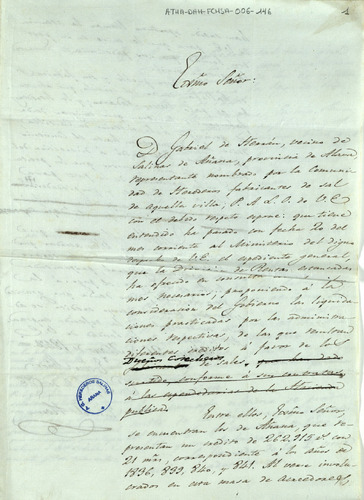 ATHA-DAH-FCHSA-006-146
1
Exmo Señor:
D. Gabriel de Herrán, vecino de
Salinas de Añana, provincia de Alava
representante nombrado por la Comuni
dad de Herederos fabricantes de sal
de aquella villa, P. A. L. P. de V.E.
con el debido respeto expone: que tiene
entendido ha pasado con fecha 20 del
mes corriente al Ministerio del digno
cargo de V.E. el espediente general,
que la Direccion de Rentas
ha ofrecido en
mes necesarios, proponiendo á la
consideracion del Gobierno las liquida
ciones practicadas por las administra
ciones respectivas, de las que resultan
diferentes creditos á favor de los
Dueños
de sales,
conforme á sus contratas
á las de la
publico
Entre ellos, Exmo Señor,
se encuentran los de Añana, que re
presentan un credito de 262,915 rs con
21 mrs. correspondiente á los años de
1836, 839, 840, y 841. Al verse involu
crados en esta masa de acreedores